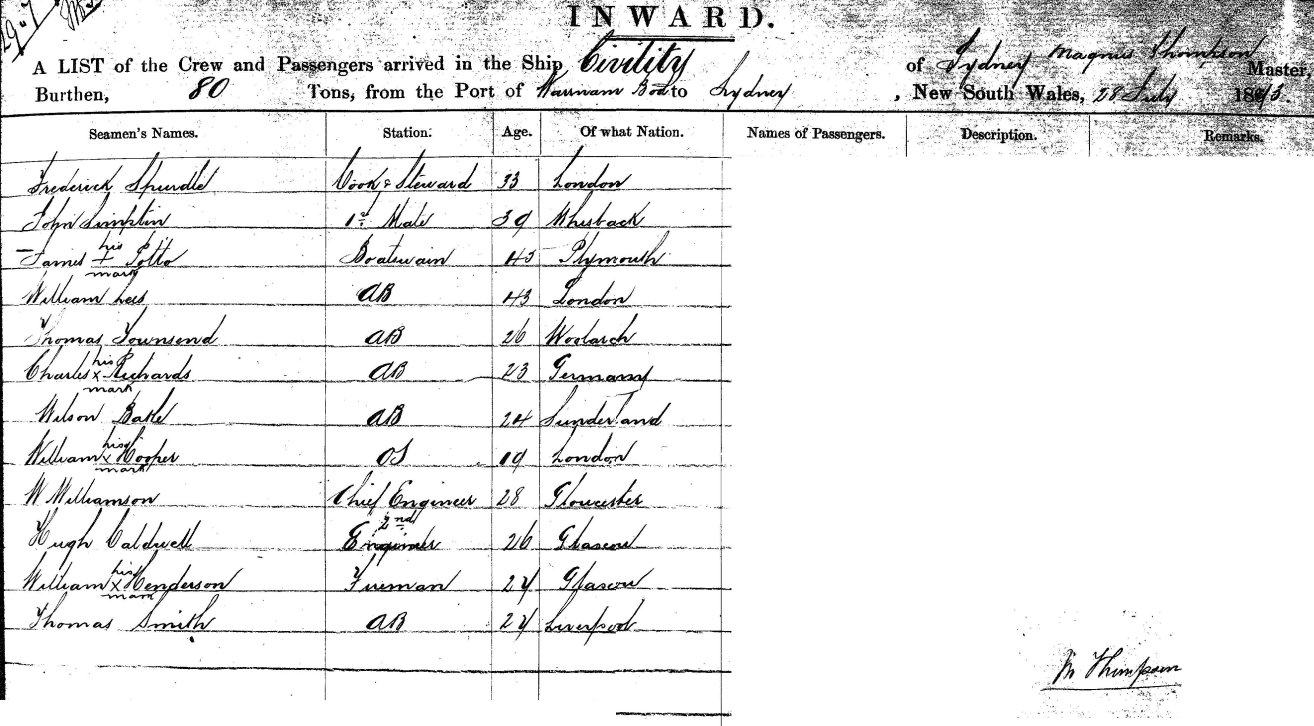 29-7
INWARD.
A LIST of the Crew and Passengers arrived in the Ship Civility of Sydney Magnus Thompson Master,
Burthen, 80 Tons, from the Port of to Sydney , New South Wales, 28 July 186
Seamen's Names. Station. Age. Of what Nation. Names of Passengers. Description. Remarks.
Frederick Spurdle Cook & Steward 33 London
John Simpkin 1st Mate 39 Whisback
James his + mark Potto Boatswain 45 Plymouth
William Lees AB 43 London
Thomas Townsend AB 26 Woolarch
Charles his x mark Richards AB 23 Germany
Wilson Bake AB 24 Sunderland
William his x mark Cooper OS 19 London
W Williamson Chief Engineer 28 Gloucester
Hugh Caldwell 2nd Engineer 26 Glascow
William his x mark Henderson Fireman 24 Glascow
Thomas Smith AB 24 Liverpool
M Thompson